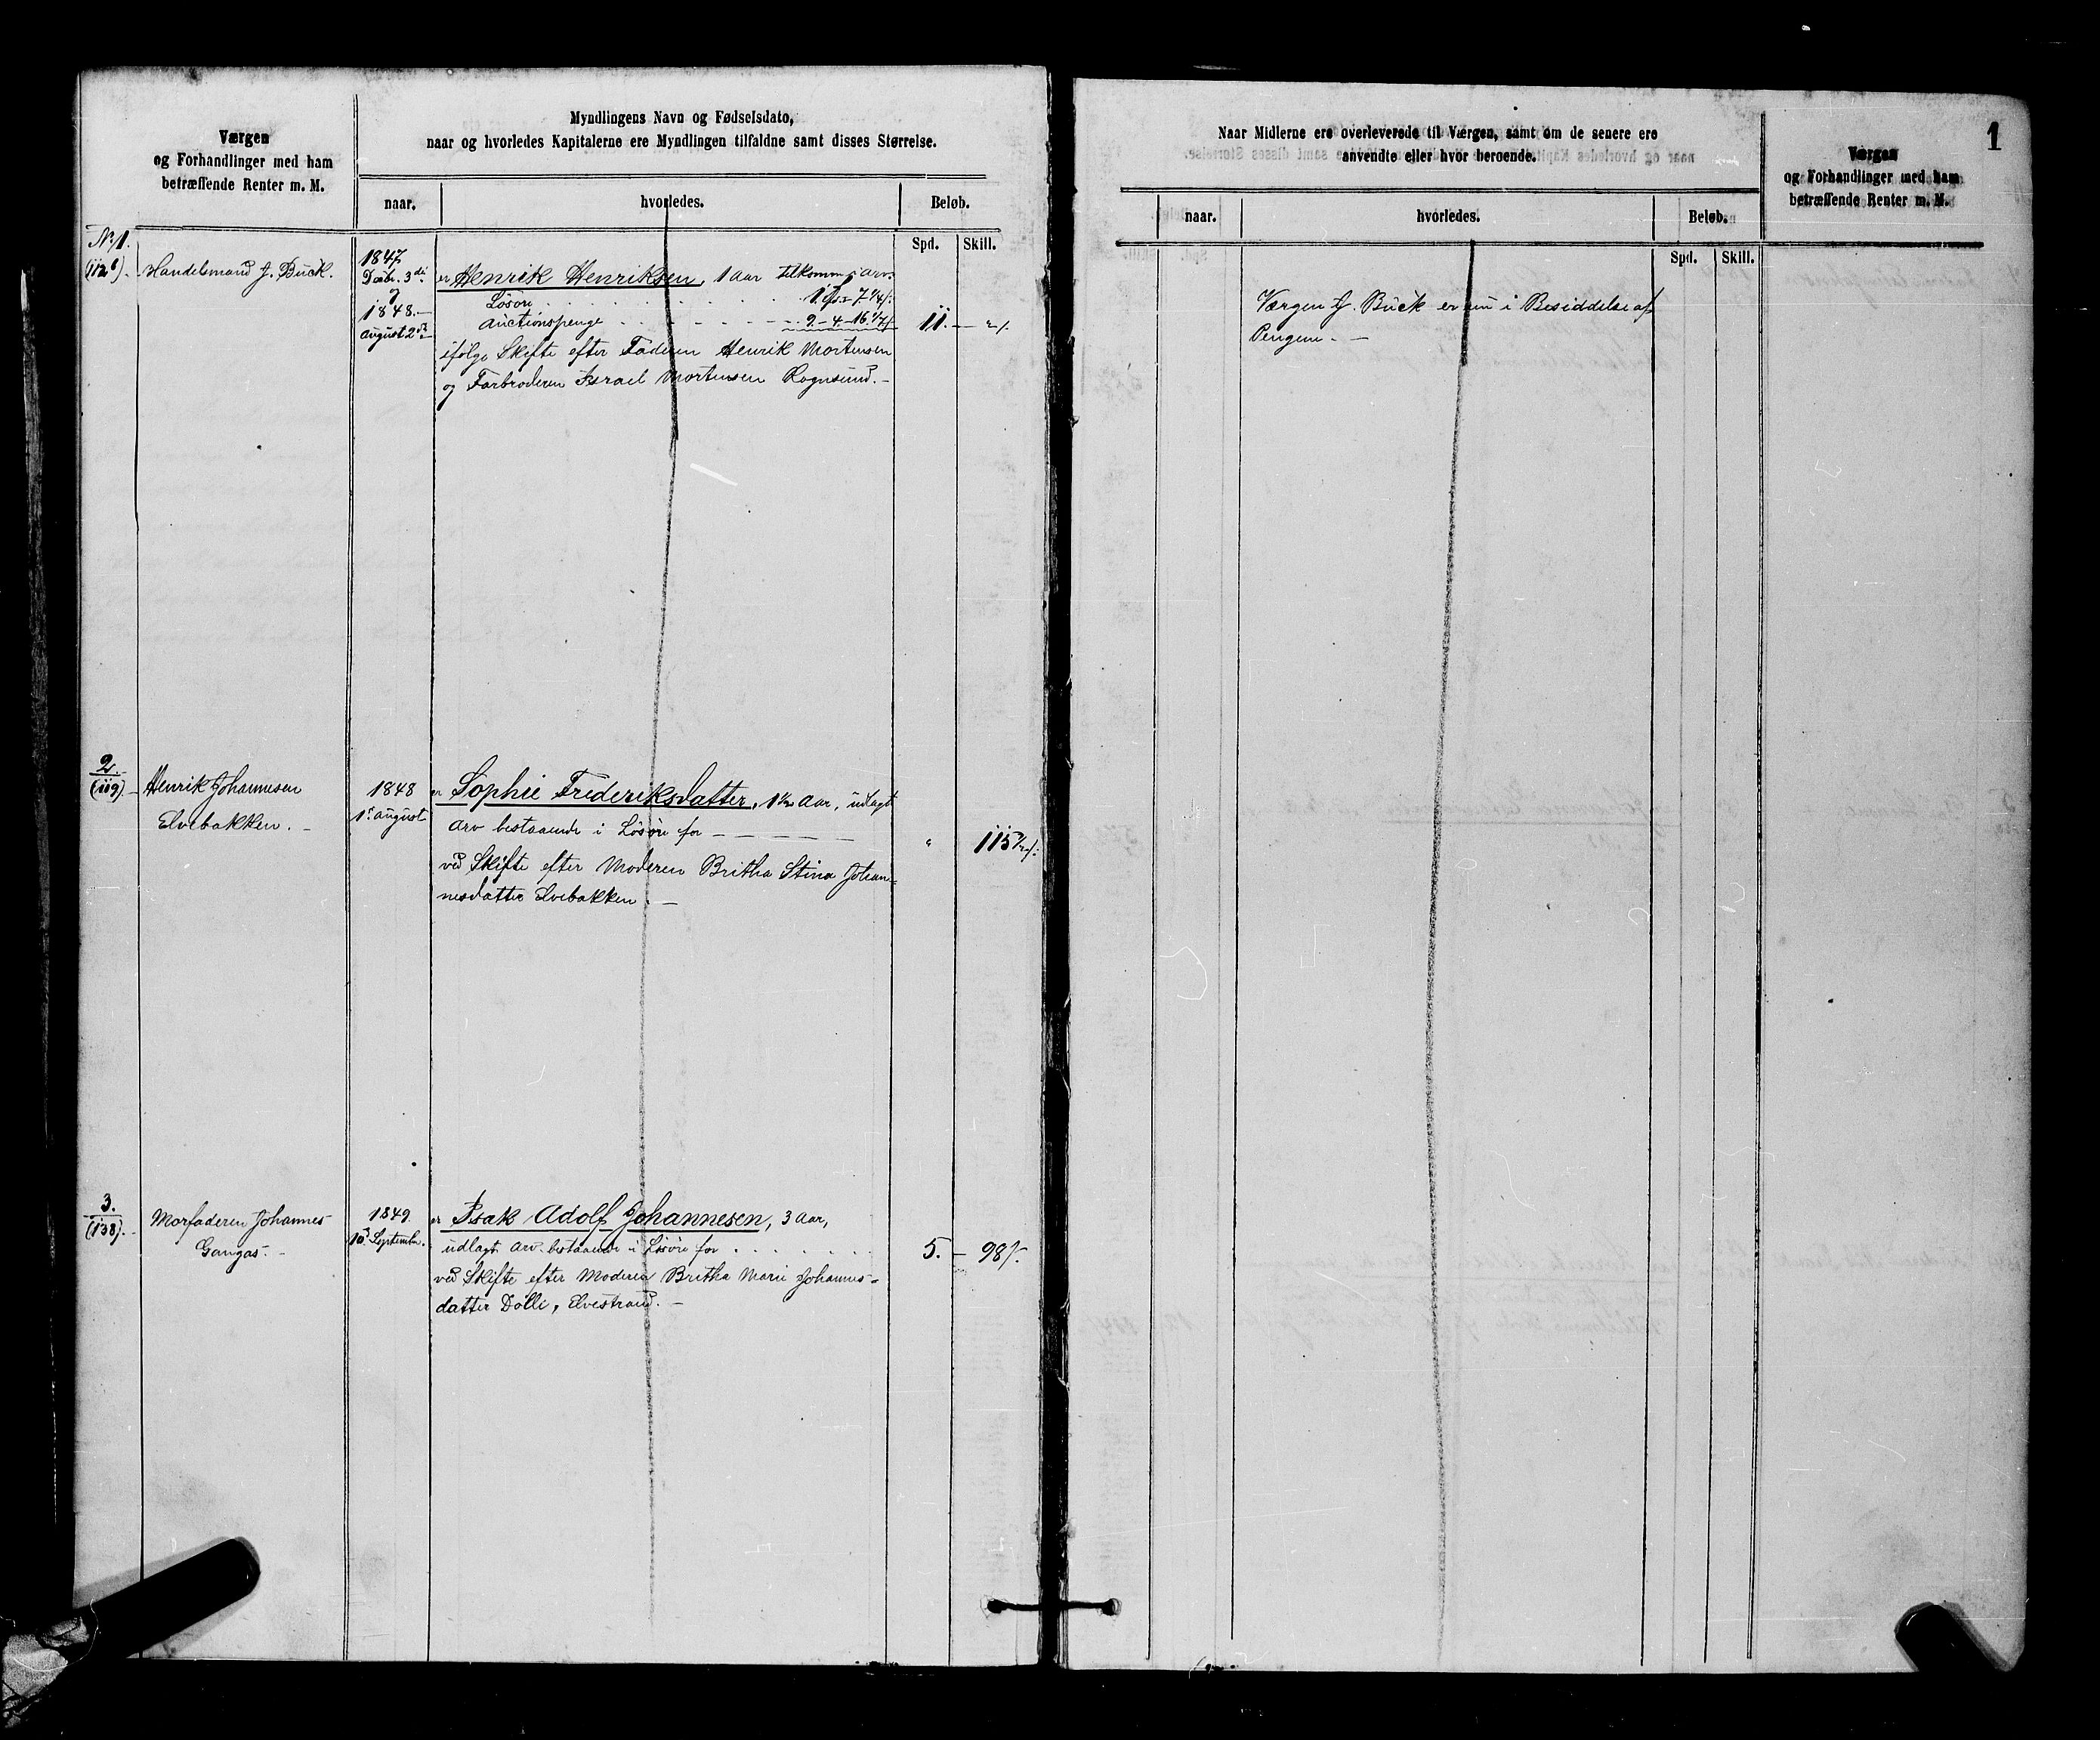 Værgen
og Forhandlinger med ham
betræffende Renter m. M.
Myndlingens Navn og Fødselsdato,
naar og hvorledes Kapitalerne ere Myndlingen tilfaldne samt disses Størrelse.
naar.
hvorledes.
Beløb.
Spd.
Skill.
No 1.
Handelsmand J. Buck.
1847
Decbr. 3die
og
1848.
August 2den
er Henrik Henriksen, 1 Aar tilkommen arv:
Løsøre . . . . . . . . . . 1 Spd. 7 1/4 s:
Auctionspenge . . . . . . 9 - 4 - 16 1/7 s
11. — " s.
ifølge Skifte efter Faderen Henrik Mortensen
og Farbroderen Israel Mortensen Rognsund. —
2.
(119). —
Henrik Johannesen
Elvebakken. —
1848
1ste August
er Sophie Frederiksdatter, 1 1/2 Aar, udlagt
Arv bestaaende i Løsøre for — — — —
" 115 1/2 s:
ved Skifte efter Moderen Britha Stina Johan-
nesdatter Elvebakken. —
3.
(138). —
Morfaderen Johannes
Gangas. —
1849
10 September.
er Isak Adolf Johannesen, 3 Aar,
udlagt Arv bestaaende i Løsøre for . . . . . . .
5. — 98 s.
ved Skifte efter Moderen Britha Marie Johannes-
datter Dølli, Elvestrand. —
Naar Midlerne ere overleverede til Værgen, samt om de senere ere
anvendte eller hvor beroende.
Værgen
og Forhandlinger med ham
betræffende Renter m. M.
1
naar.
hvorledes.
Beløb.
Spd.
Skill.
Værgen J. Buck er nu i Besiddelse af
Pengene. —